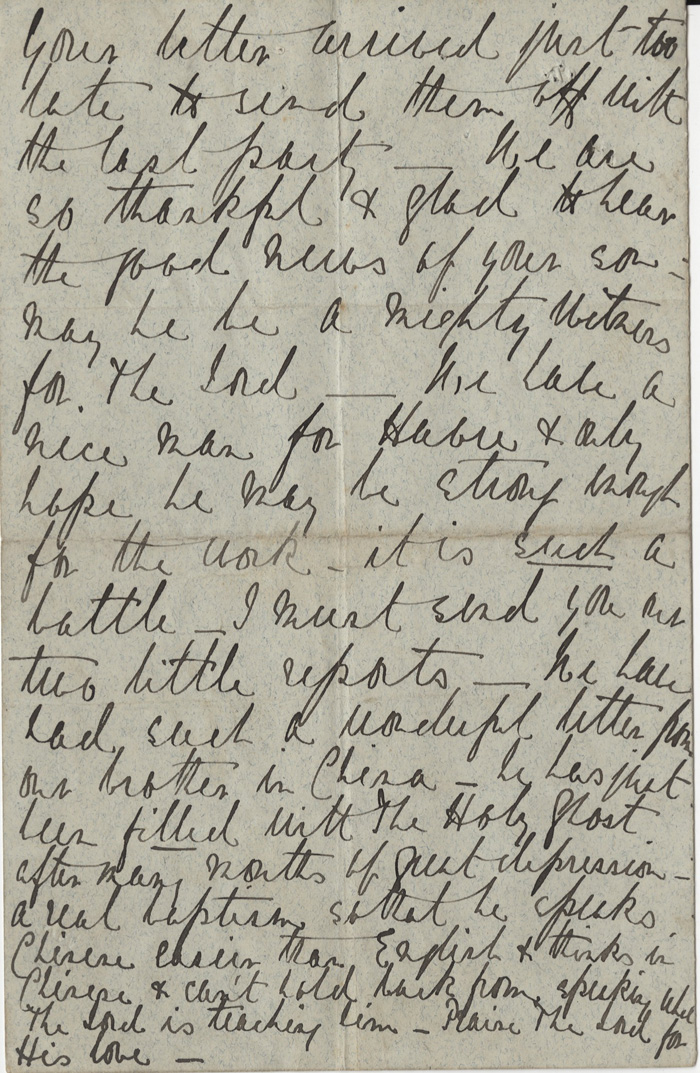 Your letter arrived just too
late to send them off with
the last party — We are
so thankful & glad to hear
the good news of your son -
may he be a mighty witness
for the Lord — We have a
nice man for Havre & only
hope he may be strong enough
for the work - it is such a
battle - I must send you our
two little reports — We have
had such a wonderful letter from
our brother in China - he has just
been filled with the Holy Ghost
after many months of great depression -
a real baptism, so that he speaks
Chinese easier than English & thinks in
Chinese & can't hold back from speaking what
The Lord is teaching him - Praise The Lord for
His love -